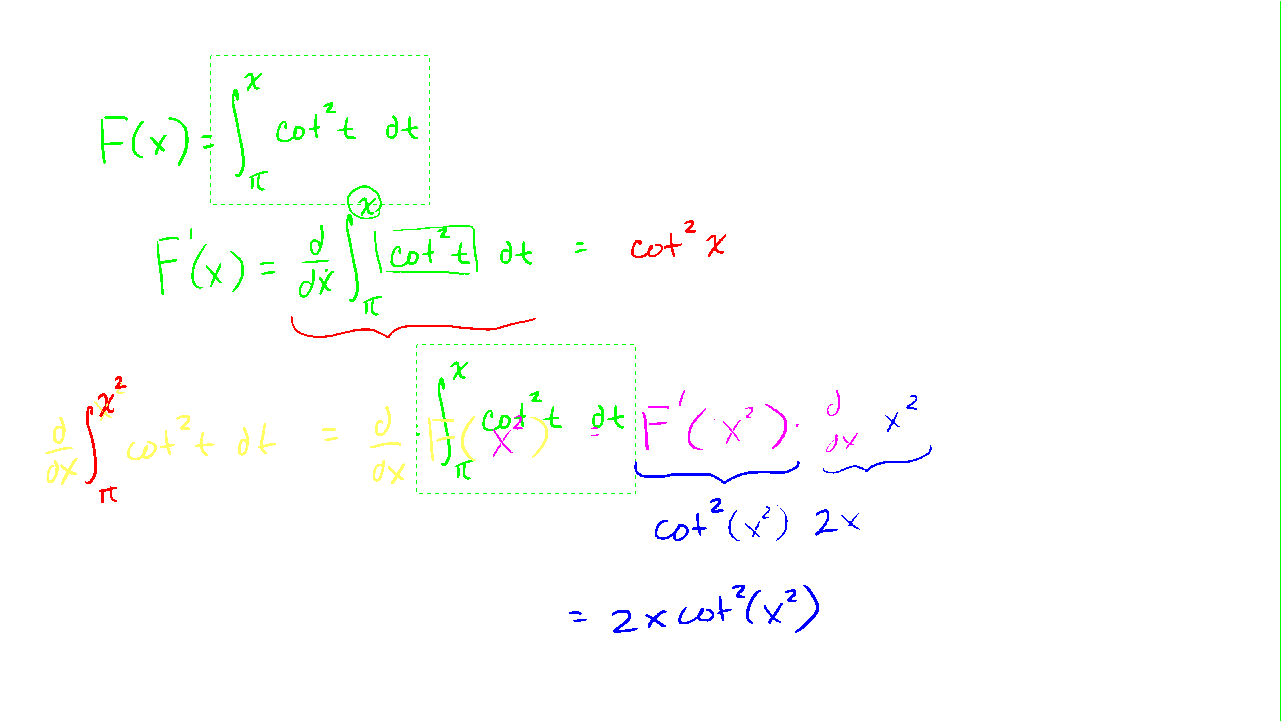 F(x) = ∫_π^x cot² t dt
F'(x) = d/dx ∫_π^x cot² t dt = cot² x
d/dx ∫_π^(x²) cot² t dt = d/dx F(x²) ∫_π^x cot² t dt = F'(x²) · d/dx x²
cot²(x²) 2x
= 2x cot²(x²)